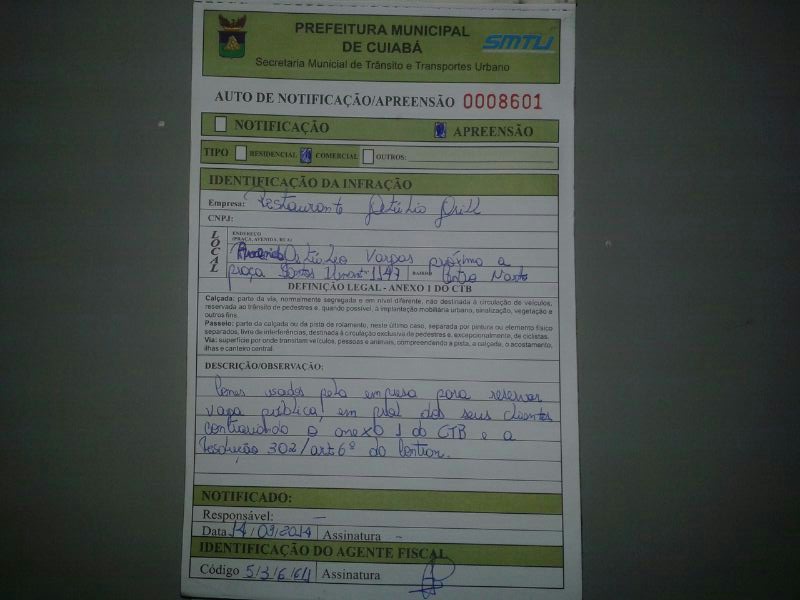 PREFEITURA MUNICIPAL
DE CUIABÁ
SMTU
Secretaria Municial de Trânsito e Transportes Urbano
AUTO DE NOTIFICAÇÃO/APREENSÃO 0008601
NOTIFICAÇÃO APREENSÃO
TIPO RESIDENCIAL COMERCIAL OUTROS:
IDENTIFICAÇÃO DA INFRAÇÃO
Empresa: Restaurante Getúlio Grill
CNPJ:
LOCAL
ENDEREÇO
(PRAÇA, AVENIDA, RUA)
Avenida Getúlio Vargas próximo a
praça Santos Dumont 1147 BAIRRO Centro Norte
DEFINIÇÃO LEGAL - ANEXO 1 DO CTB
Calçada: parte da via, normalmente segregada e em nível diferente, não destinada à circulação de veículos,
reservada ao trânsito de pedestres e, quando possível, à implantação mobiliária urbano, sinalização, vegetação e
outros fins.
Passeio: parte da calçada ou da pista de rolamento, neste último caso, separada por pintura ou elemento físico
separados, livre de interferências, destinada à circulação exclusiva de pedestres e, excepcionalmente, de ciclistas.
Via: superfície por onde transitam veículos, pessoas e animais, compreendendo a pista, a calçada, o acostamento,
ilhas e canteiro central.
DESCRIÇÃO/OBSERVAÇÃO:
Cones usados pela empresa para reservar
vaga pública, em prol dos seus clientes
contrariando o anexo 1 do CTB e a
Resolução 302/art 6º do Contran.
NOTIFICADO:
Responsável: —
Data 14/09/2014 Assinatura —
IDENTIFICAÇÃO DO AGENTE FISCAL
Código Assinatura